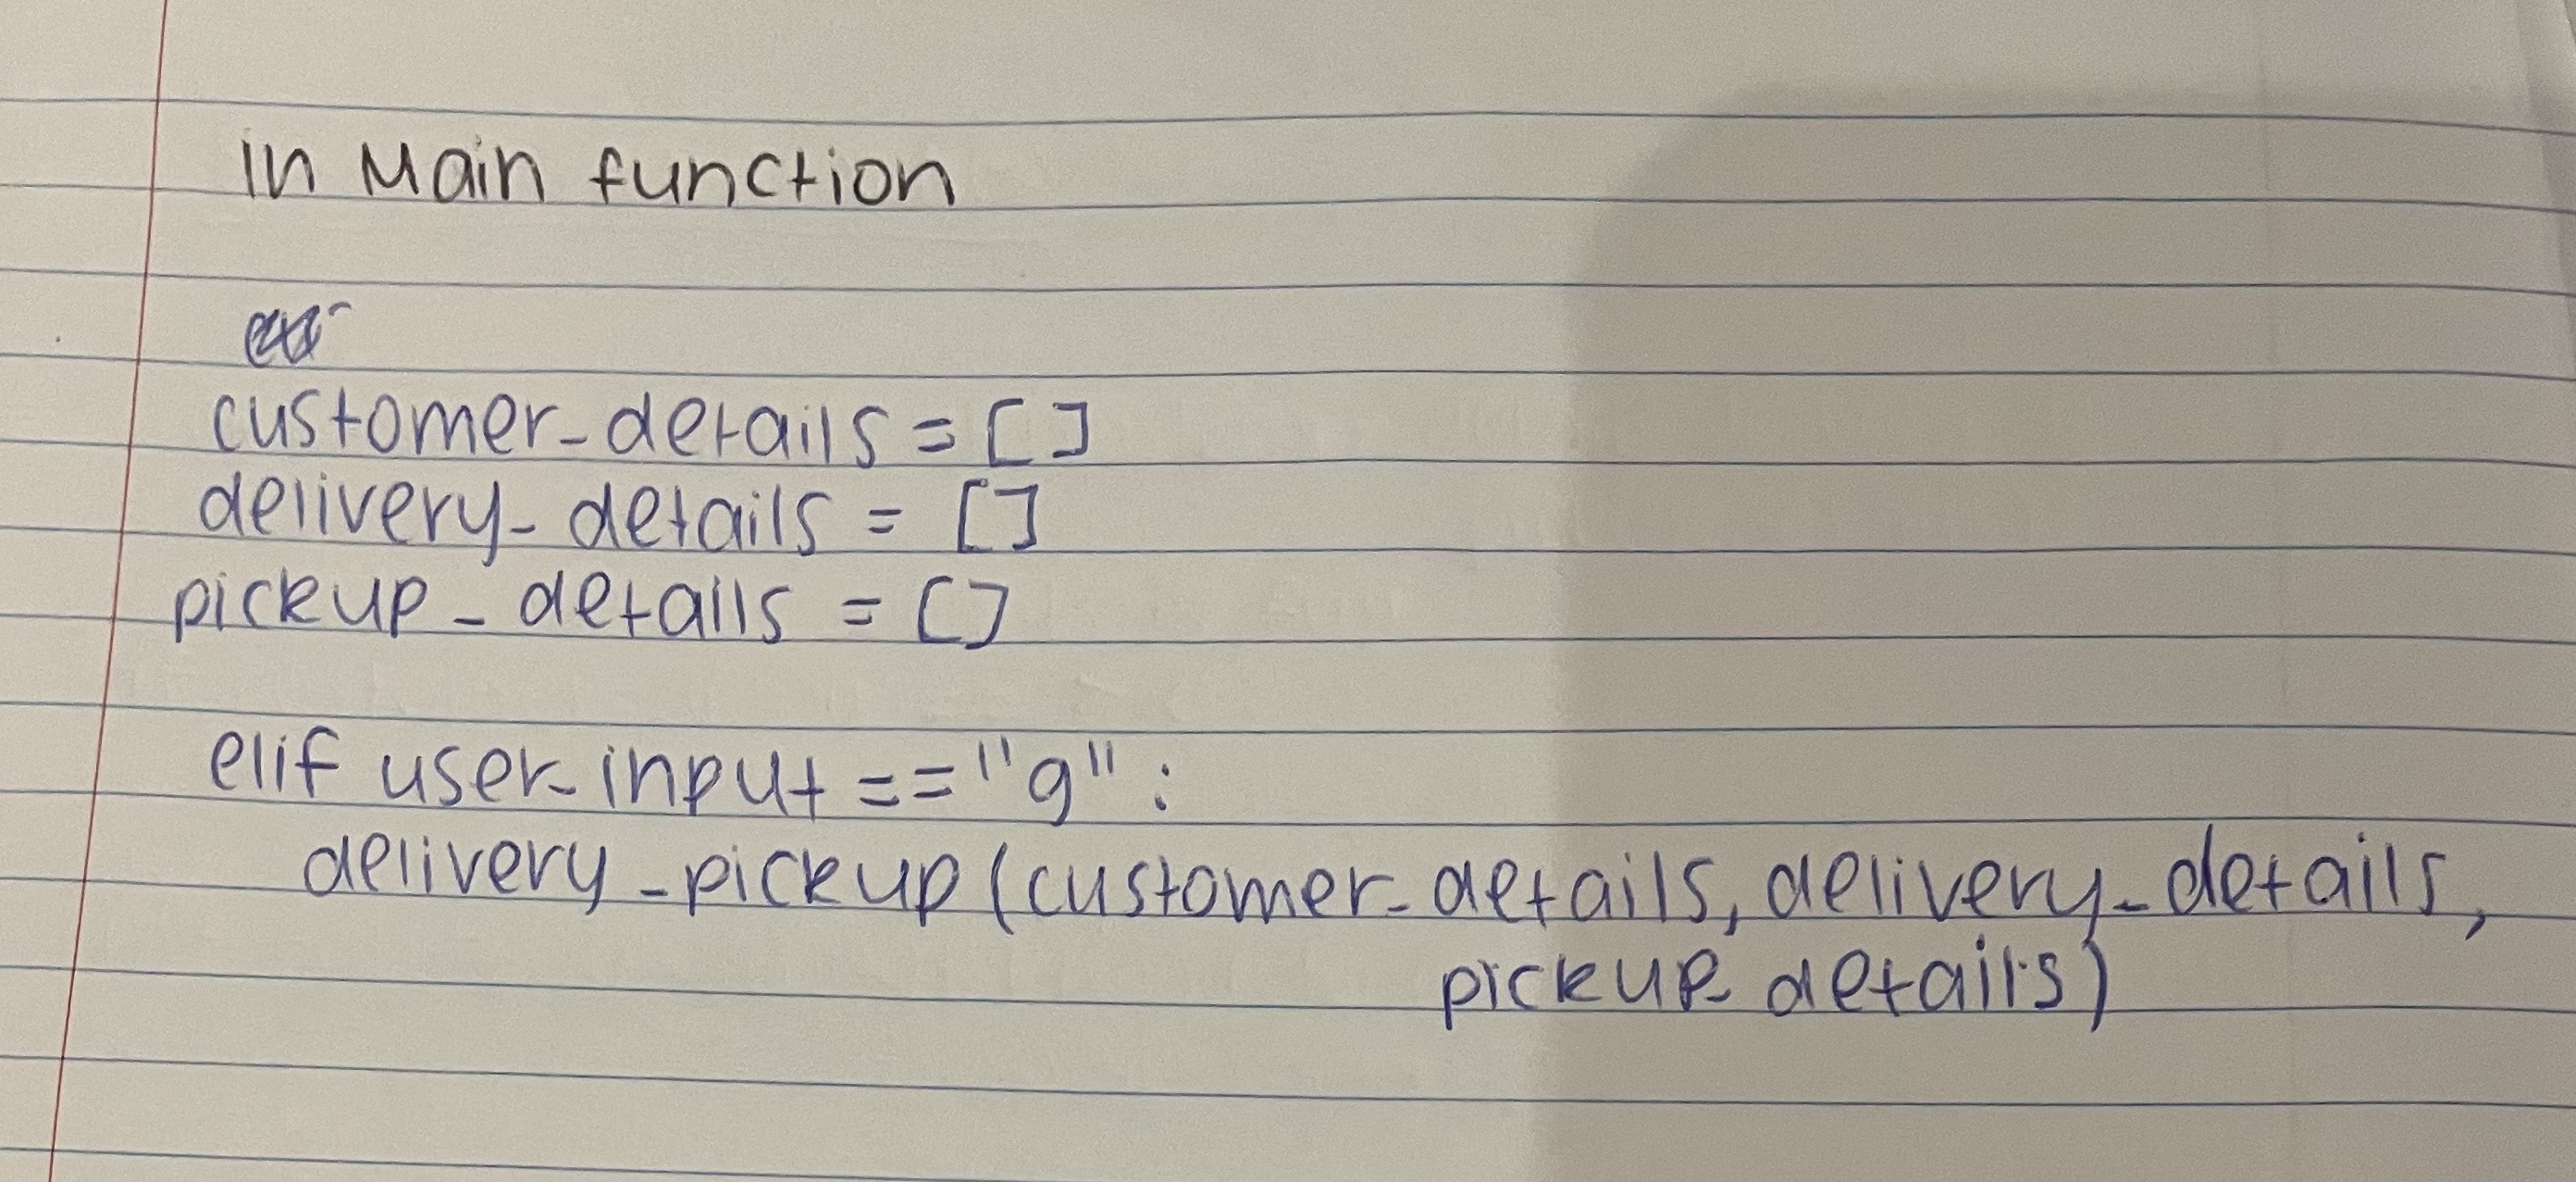 in Main function
customer_details = []
delivery_details = []
pickup_details = []
elif user_input == "g":
delivery_pickup(customer_details, delivery_details,
pickup_details)